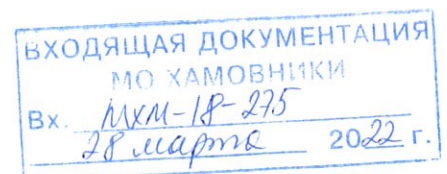 ВХОДЯЩАЯ ДОКУМЕНТАЦИЯ
МО ХАМОВНИКИ
Вх. МХМ-18-275
28 марта 2022 г.